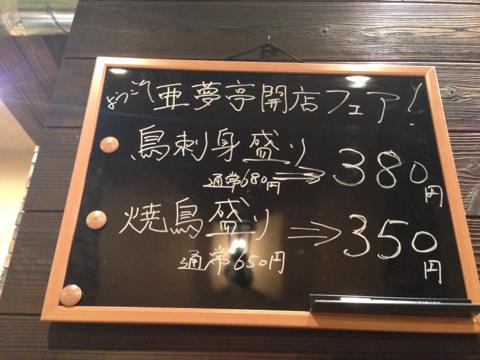 ようこそ 亜夢亭開店フェア!
鳥刺身盛り ⇒ 380円
通常680円
焼鳥盛り ⇒ 350円
通常650円